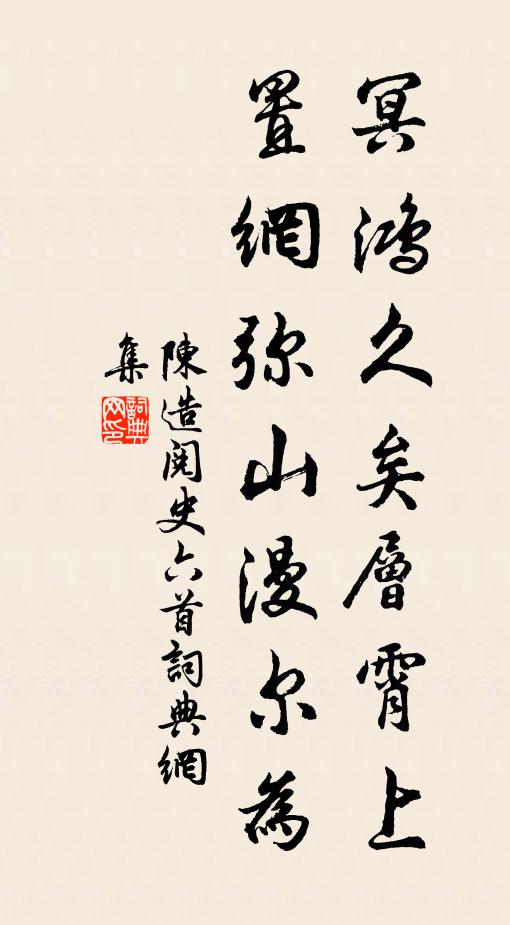 冥鴻久矣層霄上
置網弥山漫尔為
陳造閱史六首詞典網
集
詞典网印